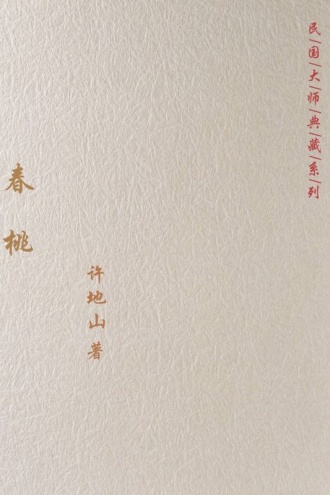 民国大师典藏系列
春桃
许地山著